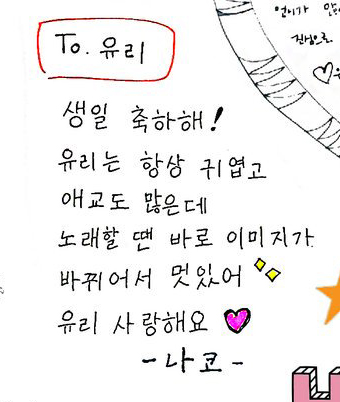 To. 유리
생일 축하해!
유리는 항상 귀엽고
애교도 많은데
노래할 땐 바로 이미지가
바뀌어서 멋있어
유리 사랑해요
-나코-
언니가
진심으로